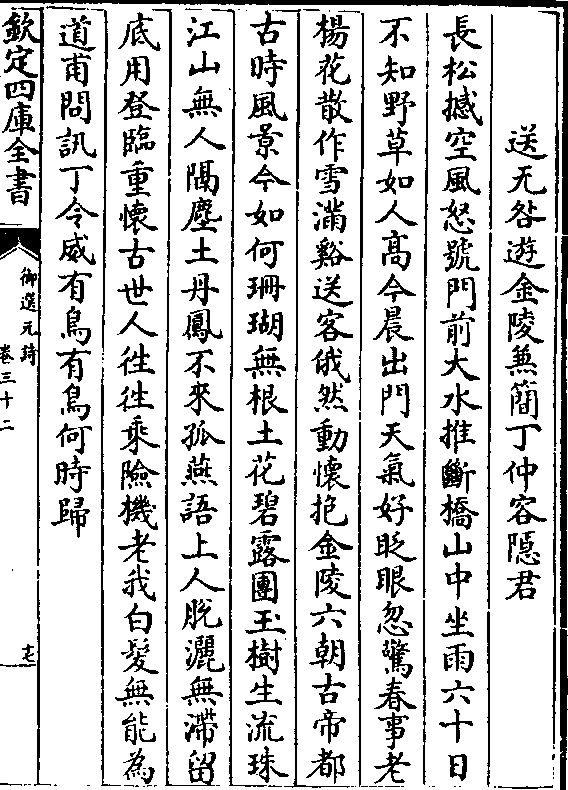 送无咎遊金陵兼簡丁仲容隠君
長松撼空風怒號門前大水推斷橋山中坐雨六十日
不知野草如人髙今晨出門天氣好眨眼忽驚春事老
楊花散作雪滿谿送客俄然動懷抱金陵六朝古帝都
古時風景今如何珊瑚無根土花碧露團玉樹生流珠
江山無人隅塵土丹鳳不來孤燕語上人脱灑無滯留
底用登臨重懷古世人徃徃乘險機老我白髮無能為
道甫問訊丁令威有鳥有鳥何時歸
欽定四庫全書
御選元詩
卷三十二